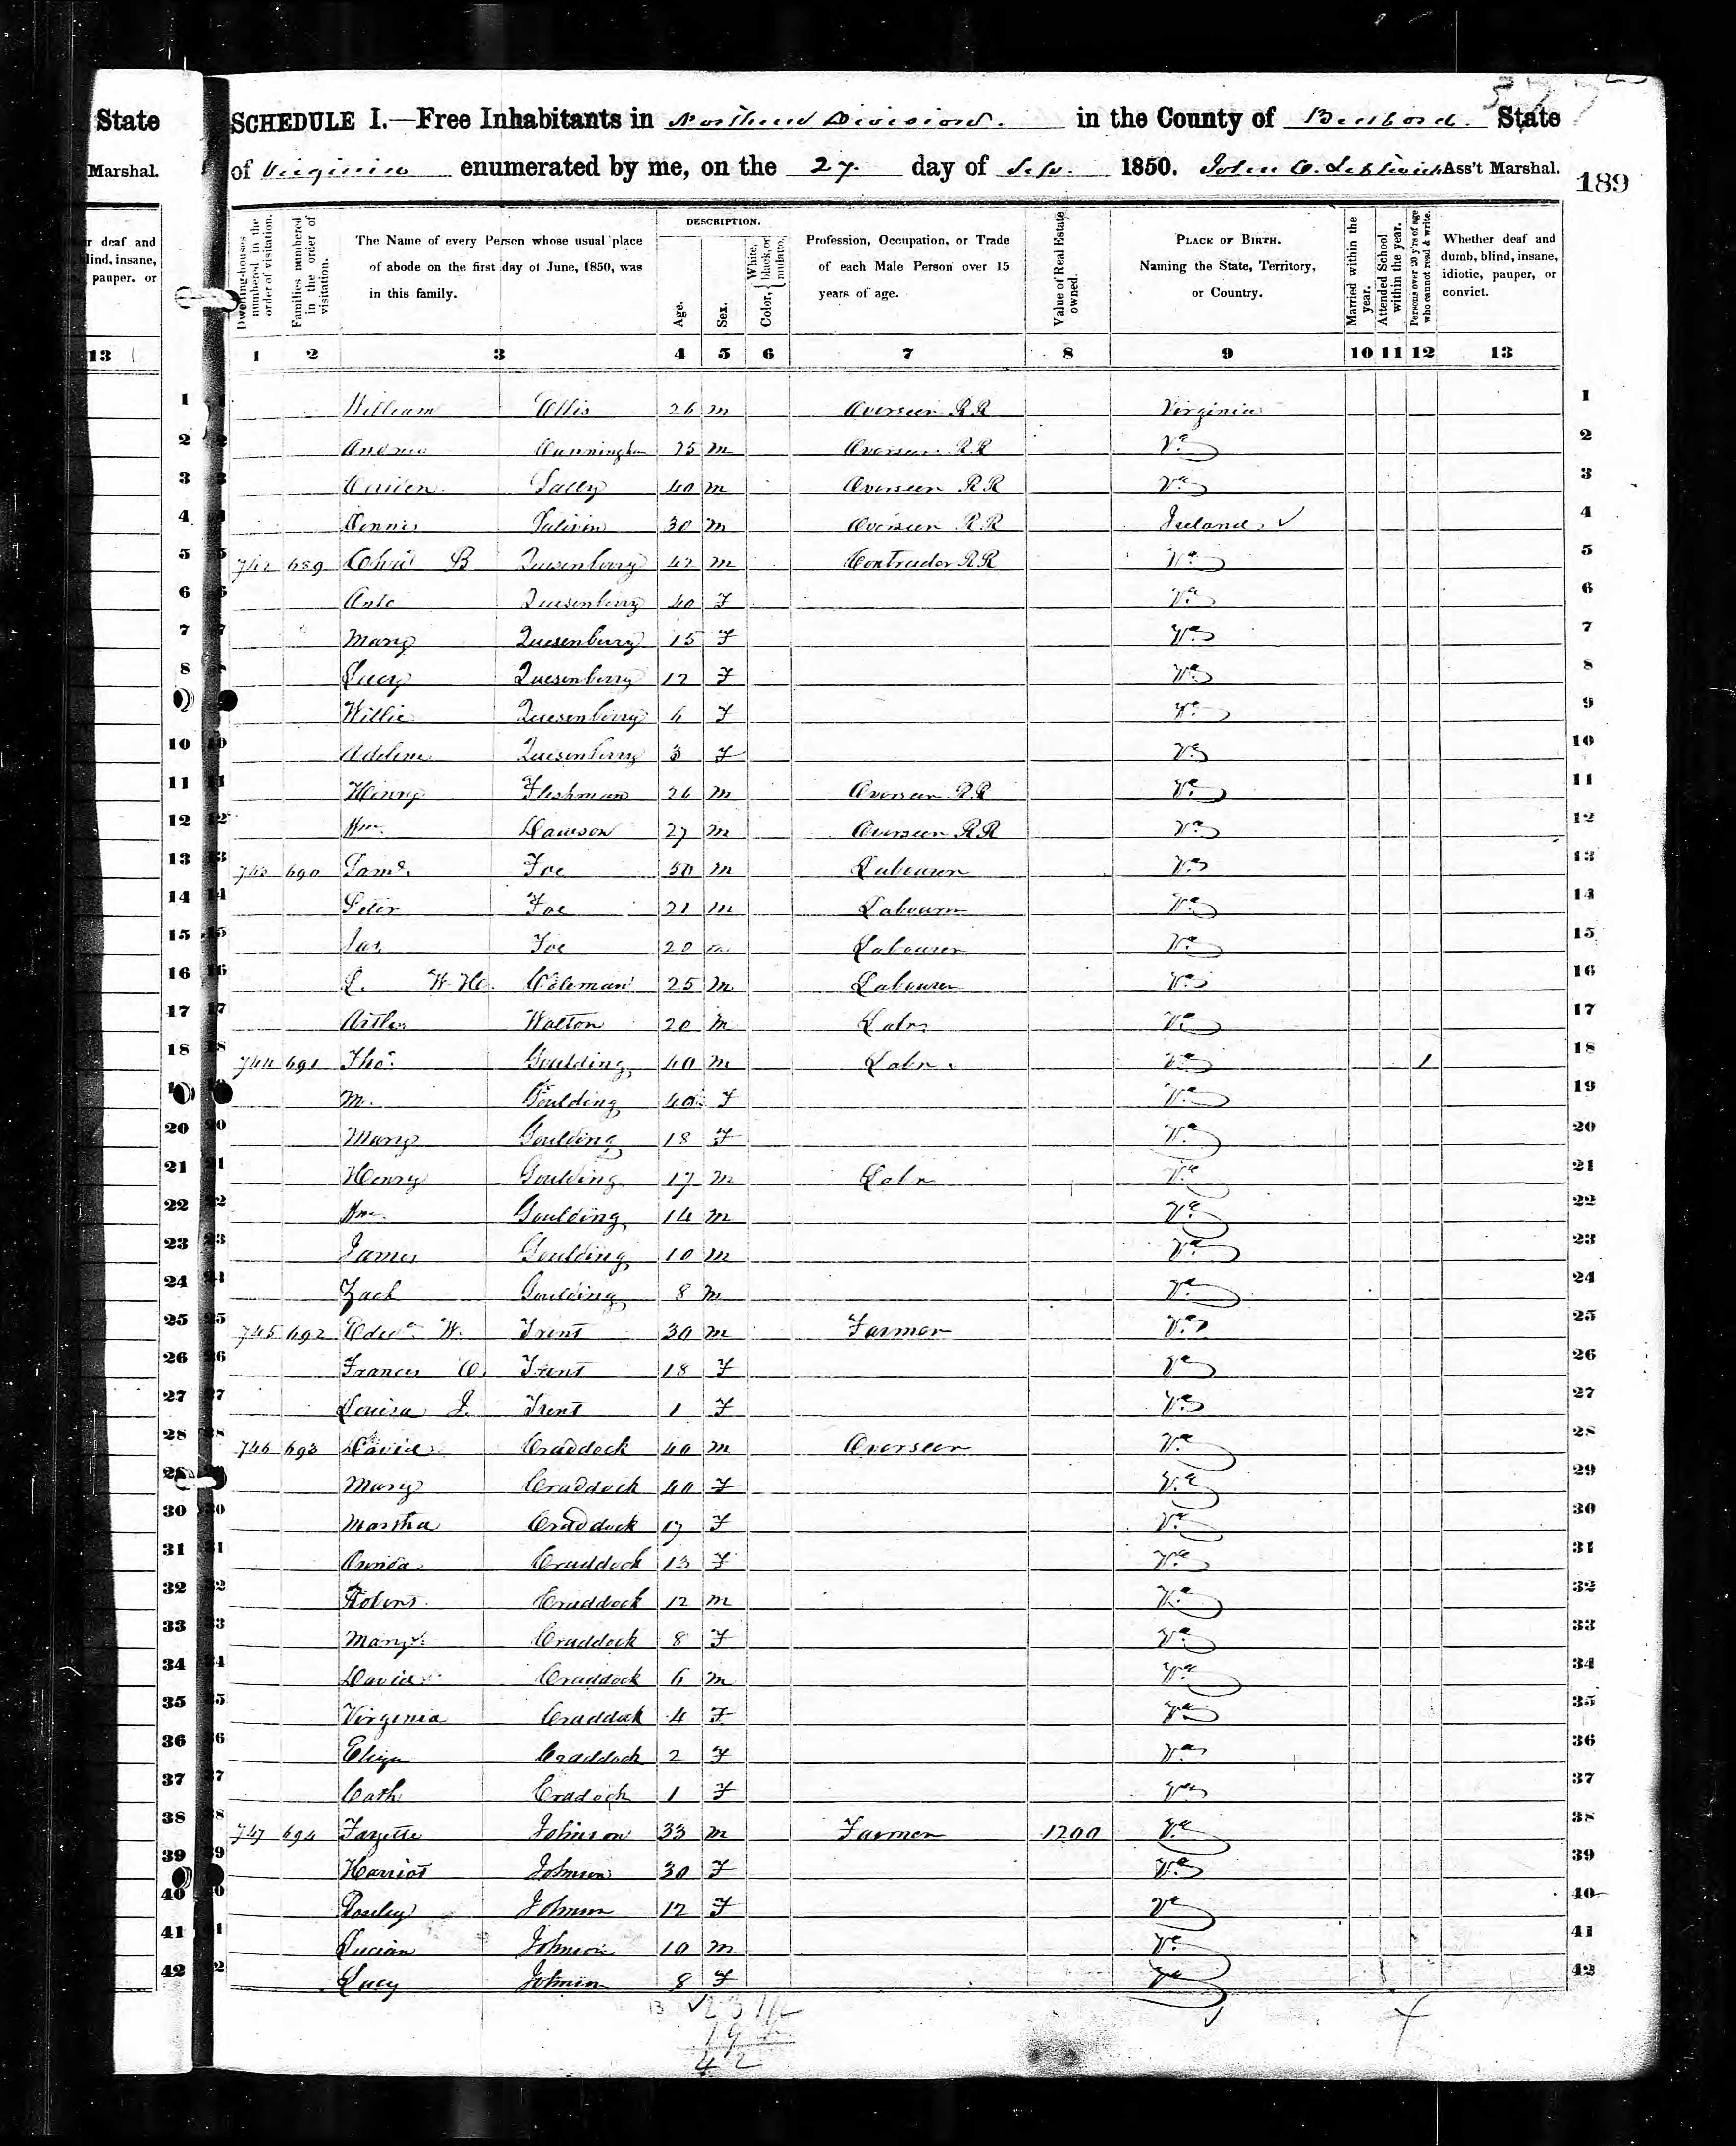 State
Marshal.
r deaf and
lind, insane,
pauper, or
13
SCHEDULE I.—Free Inhabitants in Northern Division. in the County of Bedford. State
of Virginia enumerated by me, on the 27. day of Sep. 1850. John Ass't Marshal.
189
Dwelling-houses numbered in the order of visitation.
Families numbered in the order of visitation.
The Name of every Person whose usual place of abode on the first day of June, 1850, was in this family.
DESCRIPTION.
Age.
Sex.
Color, { White, black, or mulatto.
Profession, Occupation, or Trade of each Male Person over 15 years of age.
Value of Real Estate owned.
PLACE OF BIRTH. Naming the State, Territory, or Country.
Married within the year.
Attended School within the year.
Persons over 20 y'rs of age who cannot read & write.
Whether deaf and dumb, blind, insane, idiotic, pauper, or convict.
1 2 3 4 5 6 7 8 9 10 11 12 13
1 William 26 m Overseer RR Virginia 1
2 Andrew Cunningham 25 m Overseer RR Va 2
3 40 m Overseer RR Va 3
4 Dennis 30 m Overseer RR Ireland ✓ 4
5 742 689 B Quesenberry 42 m Contractor RR Va 5
6 Quesenberry 40 F Va 6
7 Mary Quesenberry 15 F Va 7
8 Lucy Quesenberry 12 F Va 8
9 Willie Quesenberry 6 F Va 9
10 Adeline Quesenberry 3 F Va 10
11 Henry Fleshman 26 m Overseer RR Va 11
12 Wm. Dawson 27 m Overseer RR Va 12
13 743 690 Saml. Foe 50 m Labourer Va 13
14 Peter Foe 21 m Labourer Va 14
15 Jas. Foe 20 m Labourer Va 15
16 W. H. Coleman 25 m Labourer Va 16
17 Walton 20 m Labr Va 17
18 744 691 Thos. Goulding 40 m Labr Va 1 18
19 M. Goulding 40 F Va 19
20 Mary Goulding 18 F Va 20
21 Henry Goulding 17 m Labr Va 21
22 Wm. Goulding 14 m Va 22
23 James Goulding 10 m Va 23
24 Zach Goulding 8 m Va 24
25 745 692 Edwd. W. Trent 30 m Farmer Va 25
26 Frances Trent 18 F Va 26
27 Louisa J. Trent 1 F Va 27
28 746 693 David Craddock 40 m Overseer Va 28
29 Mary Craddock 40 F Va 29
30 Martha Craddock 17 F Va 30
31 Craddock 13 F Va 31
32 Robert Craddock 12 m Va 32
33 Mary Craddock 8 F Va 33
34 David Craddock 6 m Va 34
35 Virginia Craddock 4 F Va 35
36 Eliza Craddock 2 F Va 36
37 Cath Cradock 1 F Va 37
38 747 694 Fayette Johnson 33 m Farmer 1200 Va 38
39 Harriot Johnson 30 F Va 39
40 Johnson 12 F Va 40
41 Lucian Johnson 10 m Va 41
42 Lucy Johnson 8 F Va 42
13 ✓ 23 M
19
42